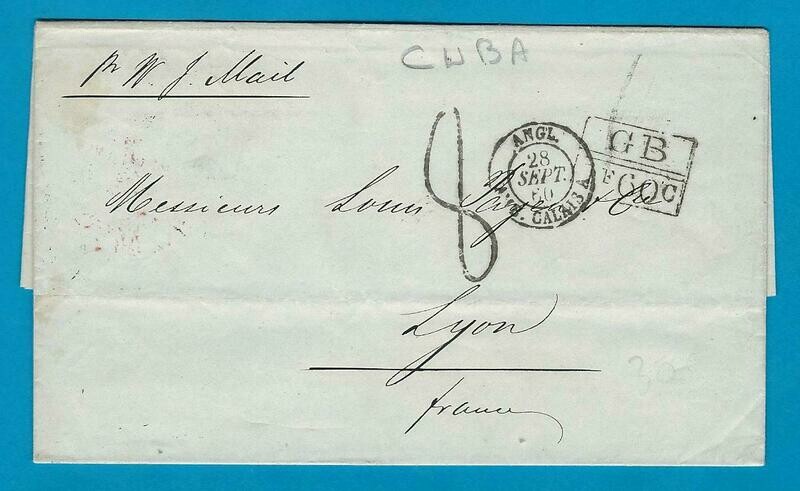 CUBA
pr W. J. Mail
8
ANGL.
28
SEPT.
60
CALAIS
GB
F 60C
Messieurs Louis & Co
Lyon
France
30